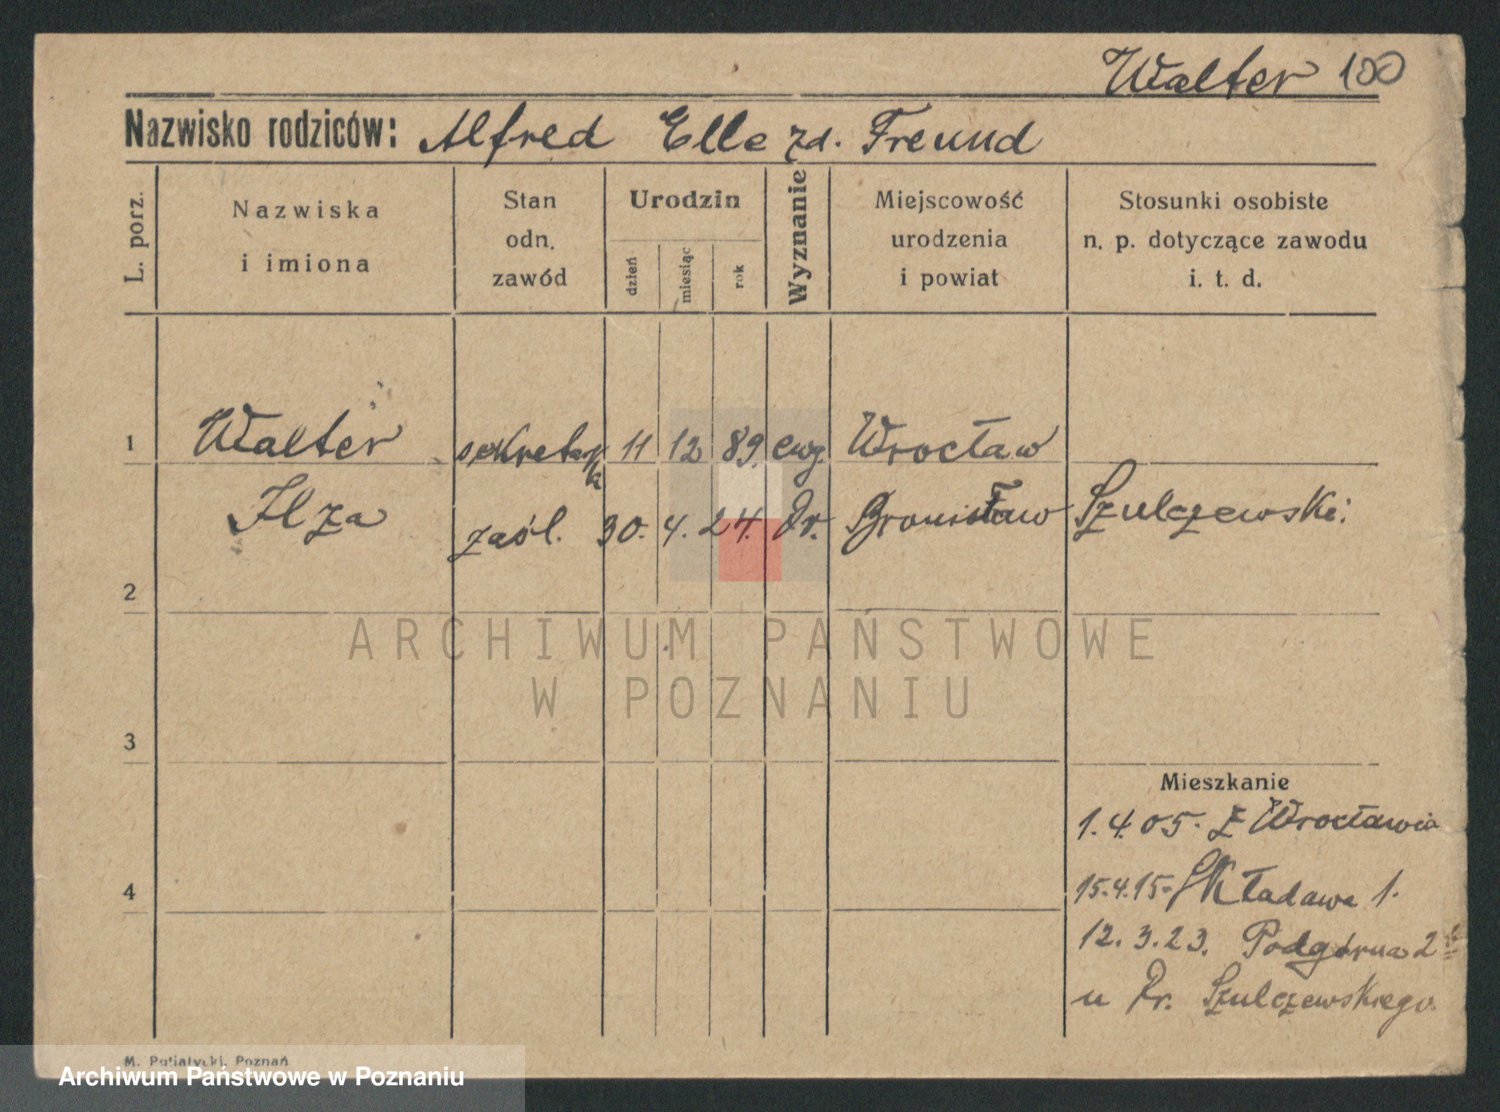 Walter 100
Nazwisko rodziców: Alfred Elle zd. Freund
L. porz.
Nazwiska
i imiona
Stan
odn.
zawód
Urodzin
dzień
miesiąc
rok
Wyznanie
Miejscowość
urodzenia
i powiat
Stosunki osobiste
n. p. dotyczące zawodu
i. t. d.
1 Walter sekretark 11 12 89. ewg. Wrocław
Ilza zaśl. 30. 4. 24. Dr. Bronisław Szulczewski.
2
3
Mieszkanie
1.4.05. z Wrocławia
4
15.4.15. Składowa 1.
12.3.23. Podgórna 2
u Dr. Szulczewskiego.
M. Putiatycki, Poznań
ARCHIWUM PAŃSTWOWE
W POZNANIU
Archiwum Państwowe w Poznaniu